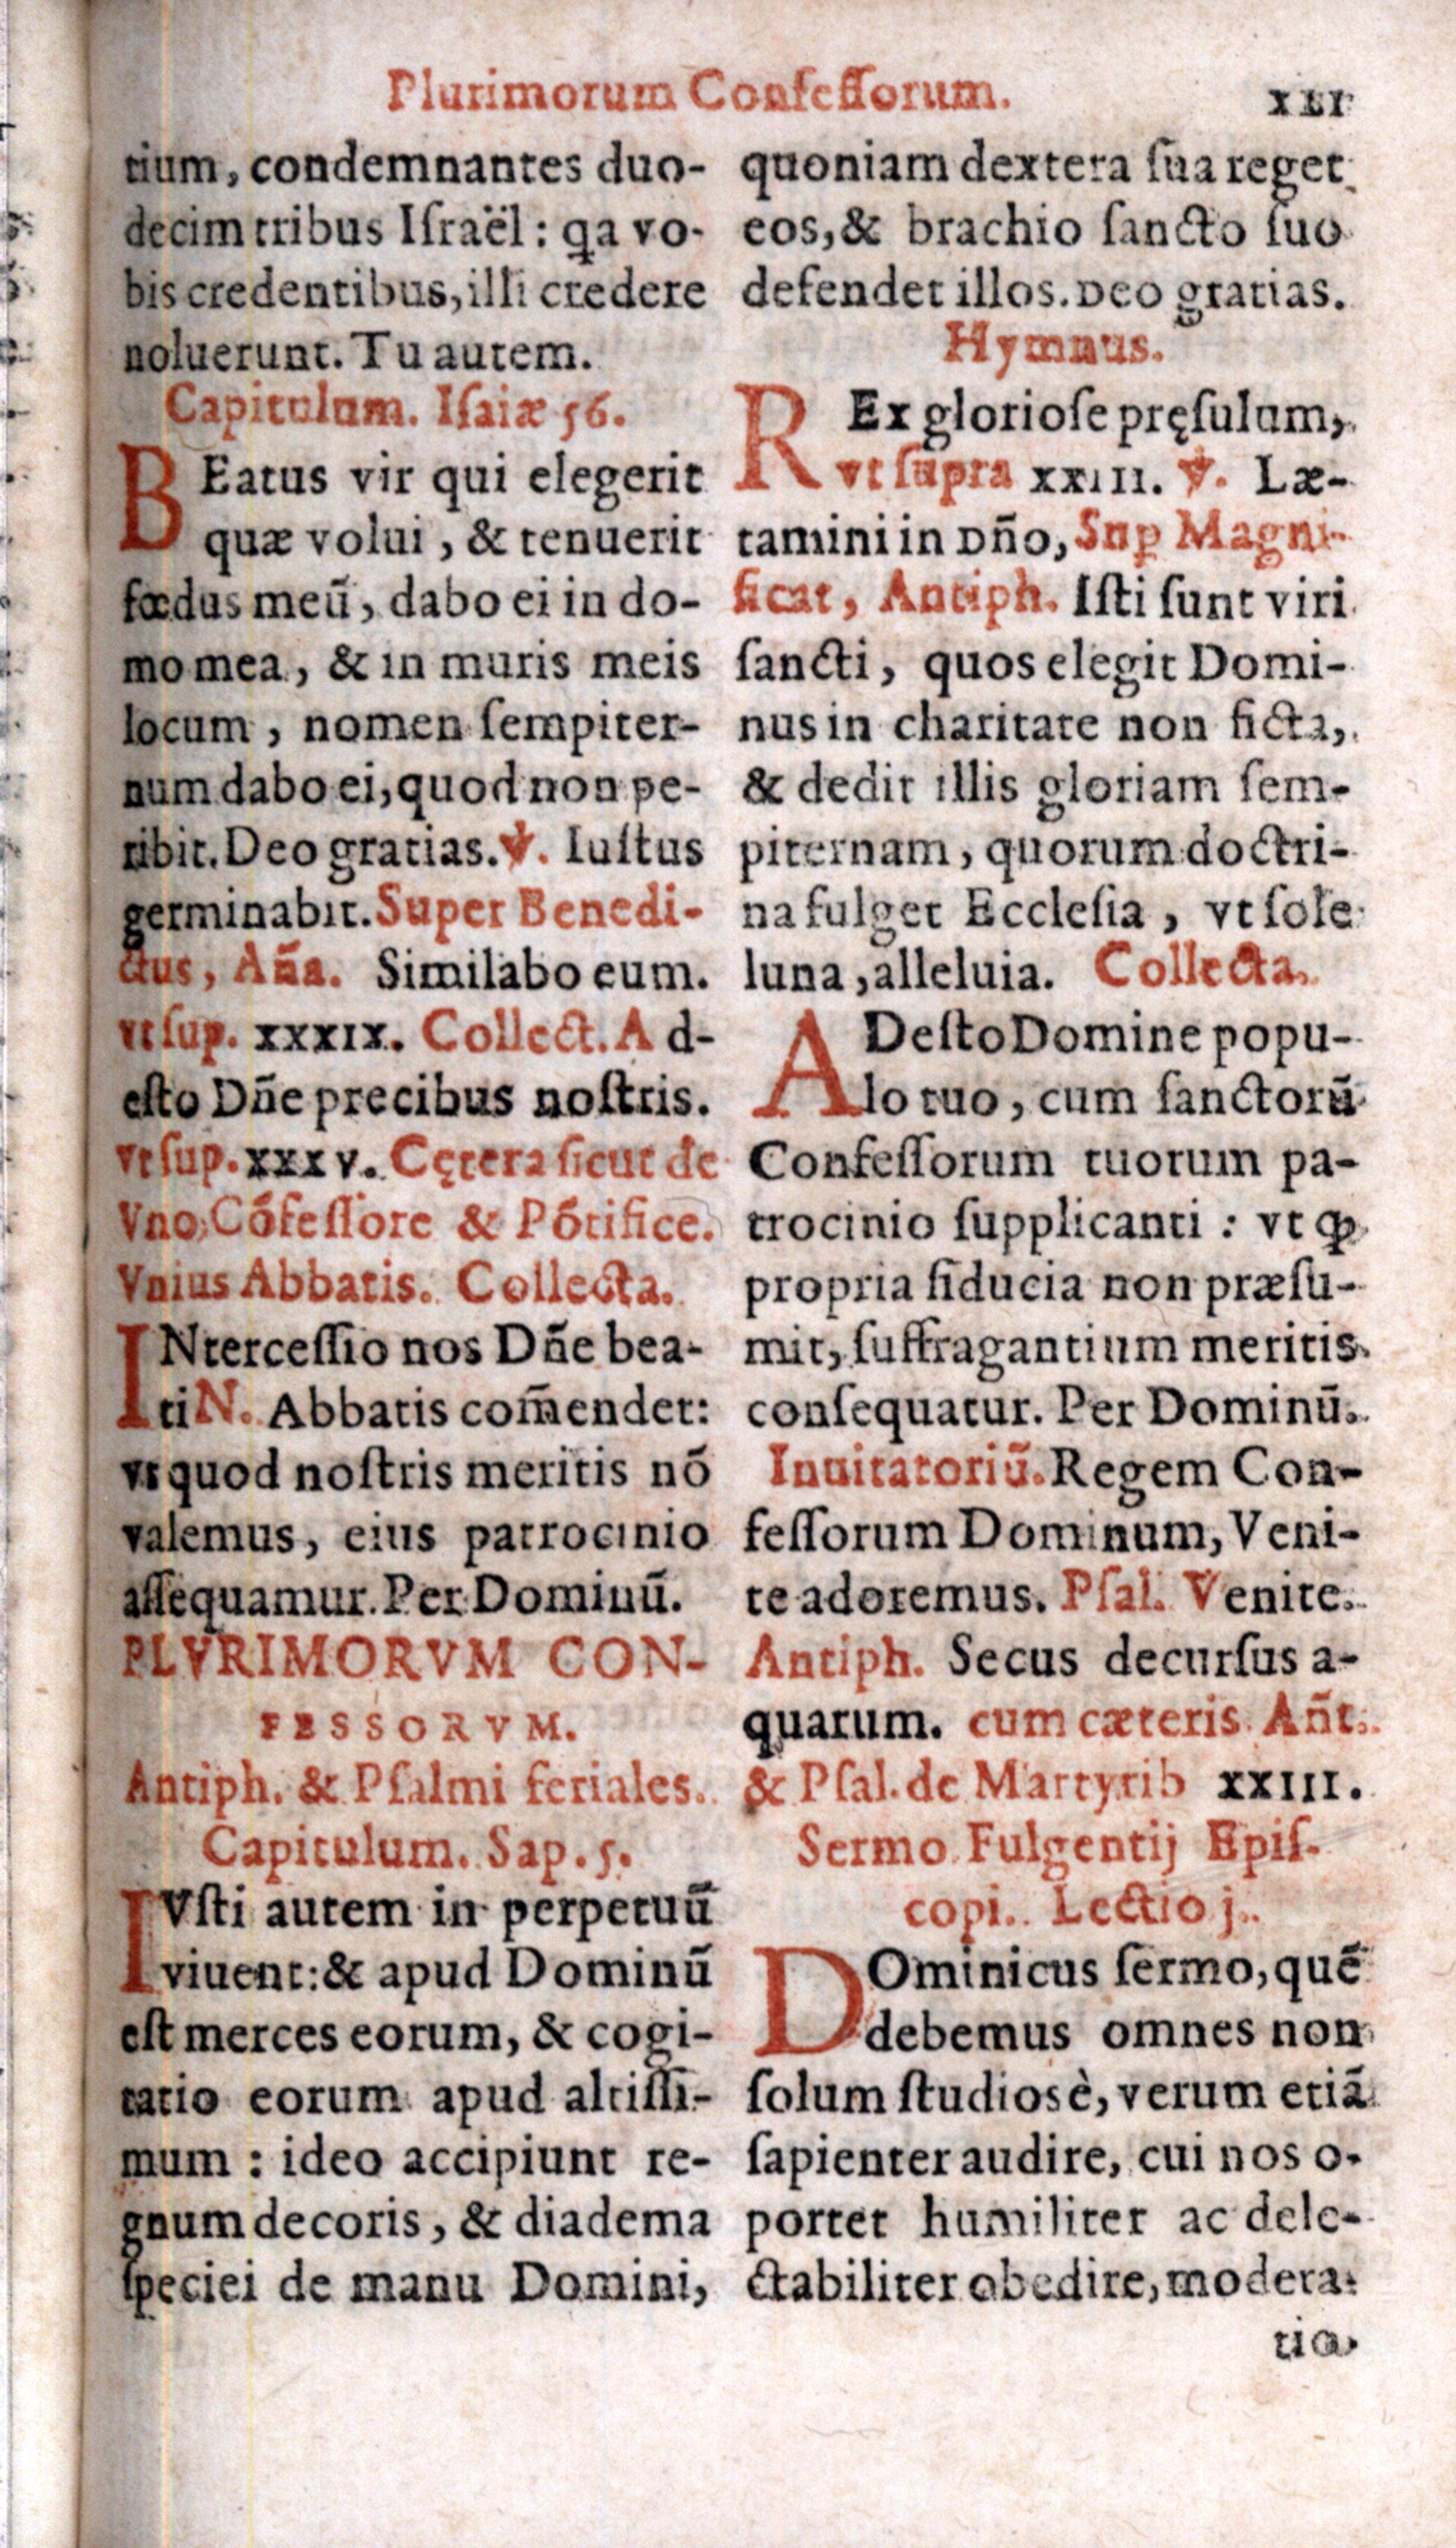 Plurimorum Confeſſorum.
XLI
tium, condemnantes duo-
decim tribus Iſraël: qa vo-
bis credentibus, illi credere
noluerunt. Tu autem.
Capitulum. Iſaiæ 56.
BEatus vir qui elegerit
quæ volui, & tenuerit
fœdus meū, dabo ei in do-
mo mea, & in muris meis
locum, nomen ſempiter-
num dabo ei, quod non pe-
ribit. Deo gratias. ℣. Iuſtus
germinabit. Super Benedi-
ctus, Aña. Similabo eum.
vt ſup. XXXIX. Collect. Ad-
eſto Dñe precibus noſtris.
vt ſup. XXXV. Cętera ſicut de
Vno, Cōfeſſore & Pōtifice.
Vnius Abbatis. Collecta.
INterceſſio nos Dñe bea-
ti N. Abbatis com̄endet:
vt quod noſtris meritis nō
valemus, eius patrocinio
aſſequamur. Per Dominū.
PLVRIMORVM CON-
FESSORVM.
Antiph. & Pſalmi feriales.
Capitulum. Sap. 5.
IVſti autem in perpetuū
viuent: & apud Dominū
eſt merces eorum, & cogi-
tatio eorum apud altiſſi-
mum: ideo accipiunt re-
gnum decoris, & diadema
ſpeciei de manu Domini,
quoniam dextera ſua reget
eos, & brachio ſancto ſuo
defendet illos. Deo gratias.
Hymnus.
REx glorioſe pręſulum,
vt ſupra XXIIII. ℣. Læ-
tamini in Dño, Suꝑ Magni-
ficat, Antiph. Iſti ſunt viri
ſancti, quos elegit Domi-
nus in charitate non ficta,
& dedit illis gloriam ſem-
piternam, quorum doctri-
na fulget Eccleſia, vt ſole
luna, alleluia. Collecta.
ADeſto Domine popu-
lo tuo, cum ſanctorū
Confeſſorum tuorum pa-
trocinio ſupplicanti: vt ꝙ
propria fiducia non præſu-
mit, ſuffragantium meritis
conſequatur. Per Dominū.
Inuitatoriū. Regem Con-
feſſorum Dominum, Veni-
te adoremus. Pſal. Venite.
Antiph. Secus decurſus a-
quarum. cum cæteris Añt.
& Pſal. de Martyrib XXIII.
Sermo Fulgentij Epiſ-
copi. Lectio j.
DOminicus ſermo, quē
debemus omnes non
ſolum ſtudiosè, verum etiā
ſapienter audire, cui nos o-
portet humiliter ac dele-
ctabiliter obedire, modera-
tia